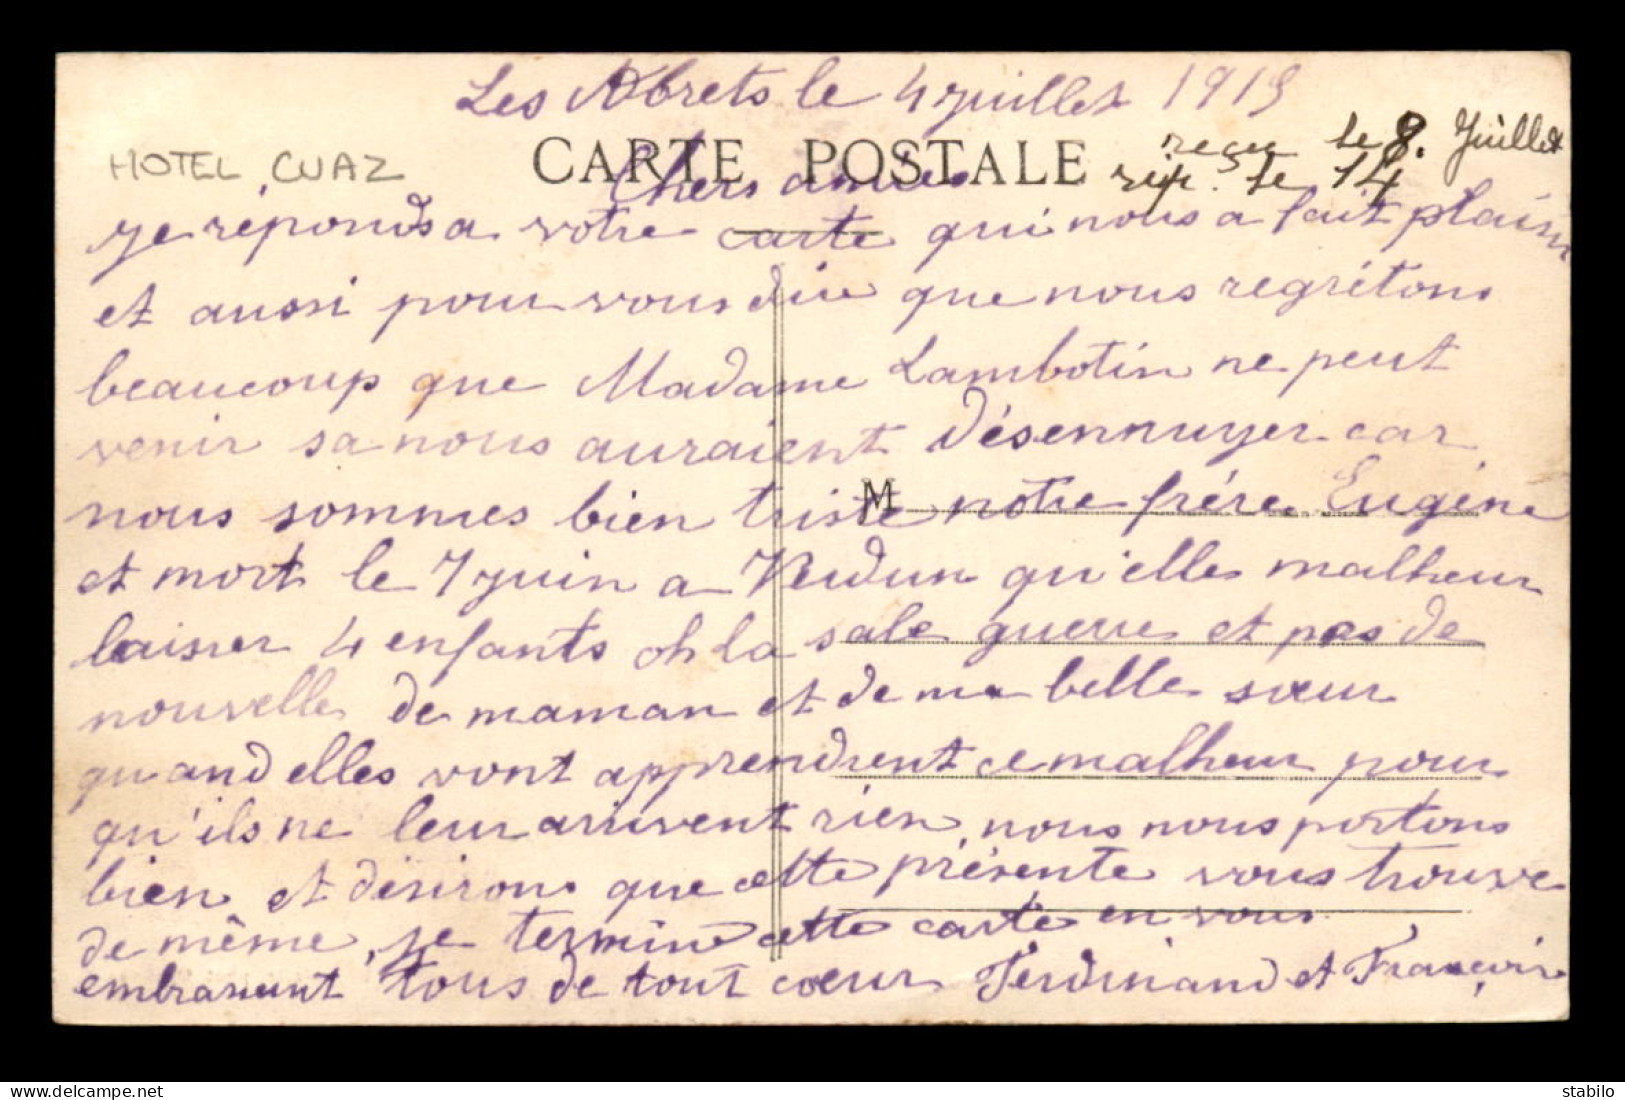 Les Abrets le 4 juillet 1915
HOTEL CUAZ
CARTE POSTALE
reçu le 8. Juillet
rép. le 14
Chers amies
je réponds a votre carte qui nous a fait plaisir
et aussi pour vous dire que nous regrétons
beaucoup que Madame Lambotin ne peut
venir sa nous auraient désennuyer car
M
nous sommes bien triste notre frére Eugéne
et mort le 7 juin a Verdun qu'elle malheur
laisser 4 enfants oh la sale guerre et pas de
nouvelle de maman et de ma belle sœur
quand elles vont apprendrent ce malheur pour
qu'ils ne leur arrivent rien nous nous portons
bien et désirons que cette présente vous trouve
de même, je termine cette carte en vous
embrassant tous de tout cœur Ferdinand et Françoise
stabilo